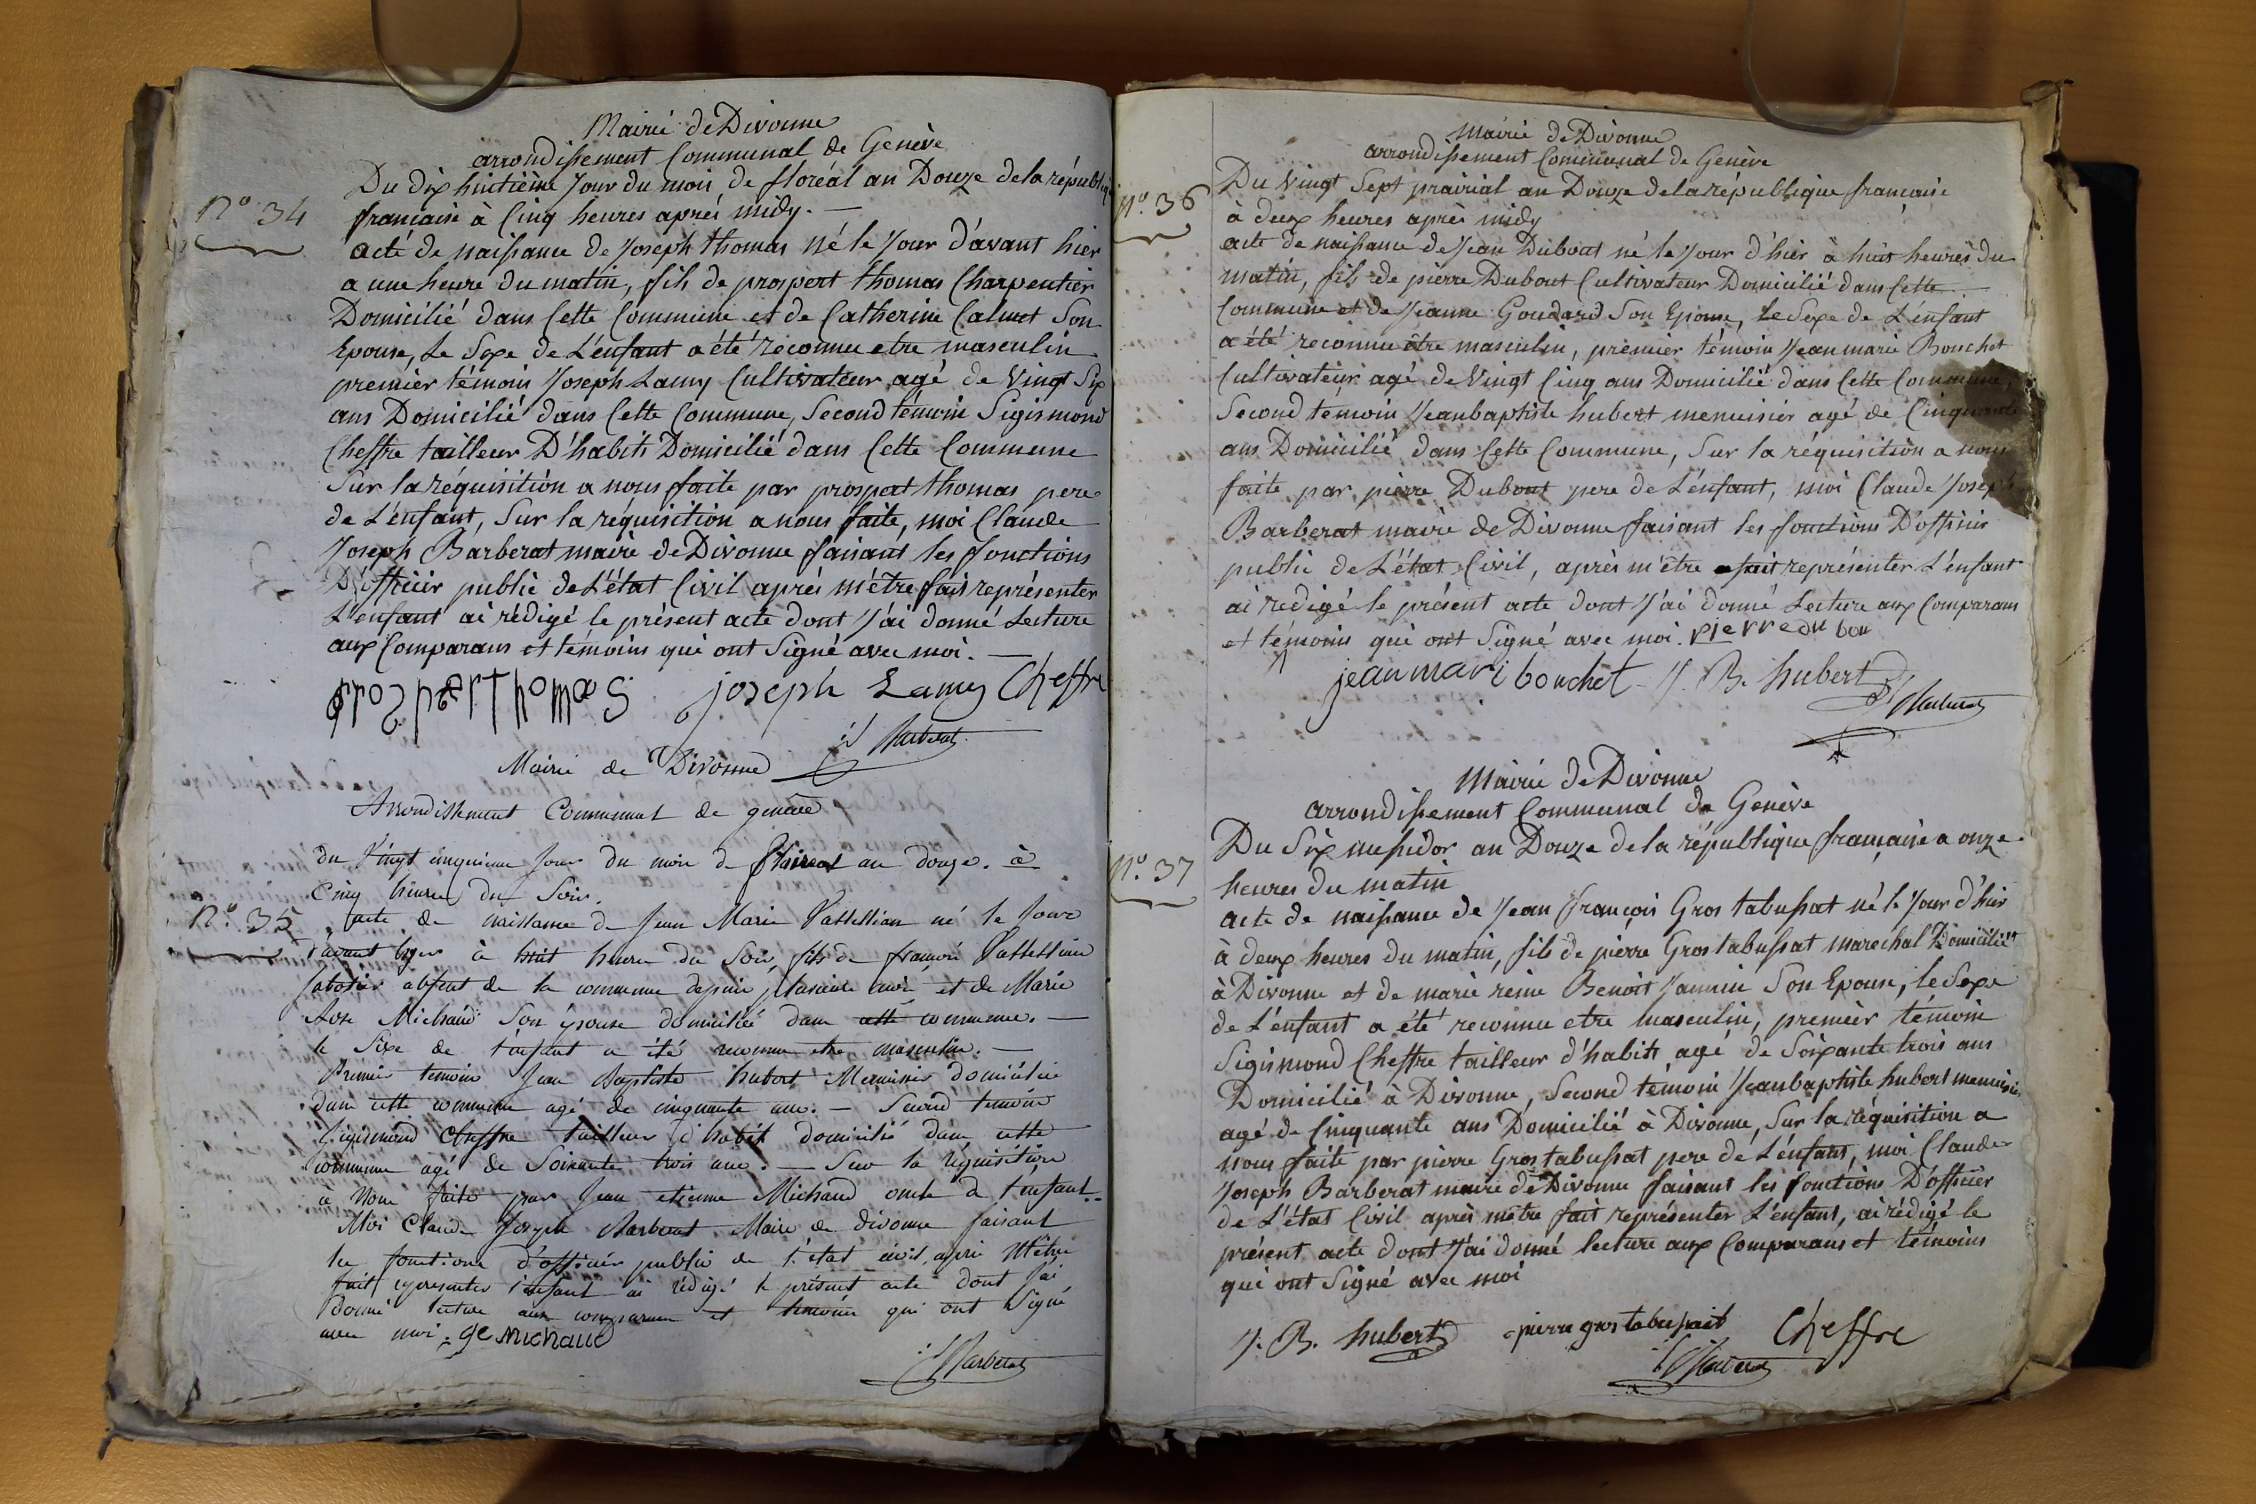 Mairie de Divonne
arrondissement Communal de Genève
Du dix huitième Jour du mois de floréal an Douze de la républiq
N.o 34
française à Cinq heures après midy. —
acte de naissance de Joseph thomas né le Jour d'avant hier
a une heure du matin, fils de prospert thomas Charpentier
Domicilié dans Cette Commune et de Catherine Calmet Son
Epouse, Le Sexe de L'enfant a été reconnu etre masculin
premier témoin Joseph Lamy Cultivateur agé de Vingt Six
ans Domicilié dans Cette Commune, Second témoin Sigismond
Cheffre tailleur D'habits Domicilié dans Cette Commune
Sur la réquisition a nous faite par prospert thomas pere
de L'enfant, Sur la réquisition a nous faite, moi Claude
Joseph Barberat maire de Divonne faisant les fonctions
D'officier public de L'état Civil après m'être fait représenter
L'enfant ai rédigé le présent acte dont J'ai donné Lecture
aux Comparans et témoins qui ont Signé avec moi. —
prosper thomas joseph Lamy Cheffre
Barberat
Mairie de Divonne
Arrondissement Communal de genève
du Vingt cinquieme Jour du mois de floreal an douze. à
Cinq heures du Soir.
N.o 35
acte de naissance de Jean Marie Vattellian né le Jour
d'avant hyer à huit heures du Soir, fils de françois Vattellian
sabotier absent de la commune depuis plusieurs mois et de Marie
Rose Michaud Son épouse domiciliée dans cette commune. —
le Sexe de l'enfant a été reconnu etre masculin. —
Premier temoin Jean Baptiste hubert Menuisier domicilié
dans cette commune agé de cinquante ans. — Second temoin
Sigismond Cheffre tailleur d'habit domicilié dans cette
commune agé de Soixante trois ans. — Sur la requisition
a Nous faite par Jean etienne Michaud oncle de l'enfant..
Moi Claude Joseph Barberat Maire de divonne faisant
les fonctions d'officier public de l'état civil, après M'être
fait representer l'enfant ai rédigé le présent acte dont J'ai
donné lecture aux comparans et temoins qui ont Signé
avec moi. ge michaud
Barberat
Mairie de Divonne
arrondissement Communal de Genève
N.o 36
Du Vingt Sept prairial an Douze de la république française
à deux heures après midy
acte de naissance de Jean Dubout né le Jour d'hier à huit heures du
matin, fils de pierre Dubout Cultivateur Domicilié dans Cette
Commune et de Jeanne Goudard Son Epouse, Le Sexe de L'enfant
a été reconnu être masculin, premier témoin Jean marie Bouchet
Cultivateur agé de Vingt Cinq ans Domicilié dans Cette Commune,
Second témoin Jean baptiste hubert menuisier agé de Cinquante
ans Domicilié dans Cette Commune, Sur la réquisition a nous
faite par pierre Dubout pere de L'enfant, moi Claude Joseph
Barberat maire de Divonne faisant les fonctions D'officier
public de L'état Civil, après m'être fait représenter L'enfant
ai redigé le présent acte dont J'ai donné Lecture aux Comparans
et témoins qui ont Signé avec moi. pierre du bou
jean mari bouchet J. B. hubert
Barberat
Mairie de Divonne
arrondissement Communal de Genève
Du Six messidor an Douze de la république française a onze
N.o 37
heures du matin
acte de naissance de Jean françois Gros tabussat né le Jour d'hier
à deux heures du matin, fils de pierre Gros tabussat marechal Domicilié
à Divonne et de marie reine Benoit Jannin Son Epouse, le Sexe
de L'enfant a été reconnu etre masculin, premier témoin
Sigismond Cheffre tailleur d'habits agé de Soixante trois ans
Domicilié à Divonne, Second témoin Jean baptiste hubert menuisier
agé de Cinquante ans Domicilié à Divonne, Sur la réquisition a
nous faite par pierre Gros tabussat pere de L'enfant, moi Claude
Joseph Barberat maire de Divonne faisant les fonctions D'officier
de L'état Civil après m'etre fait représenter L'enfant, ai rédigé le
présent acte dont J'ai donné lecture aux Comparans et témoins
qui ont Signé avec moi
J. B. hubert pierre gros tabussait Cheffre
Barberat